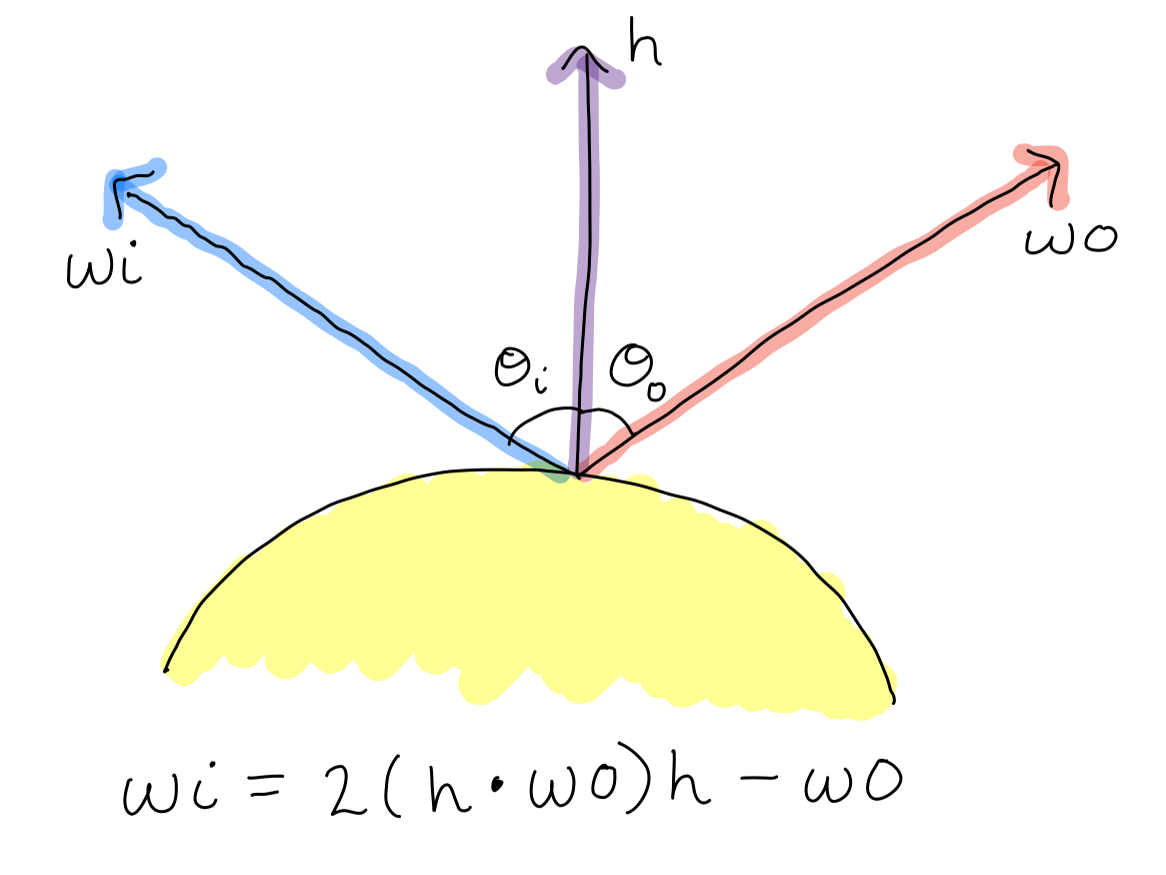 h
wi
wo
θi
θo
wi = 2(h·wo)h - wo